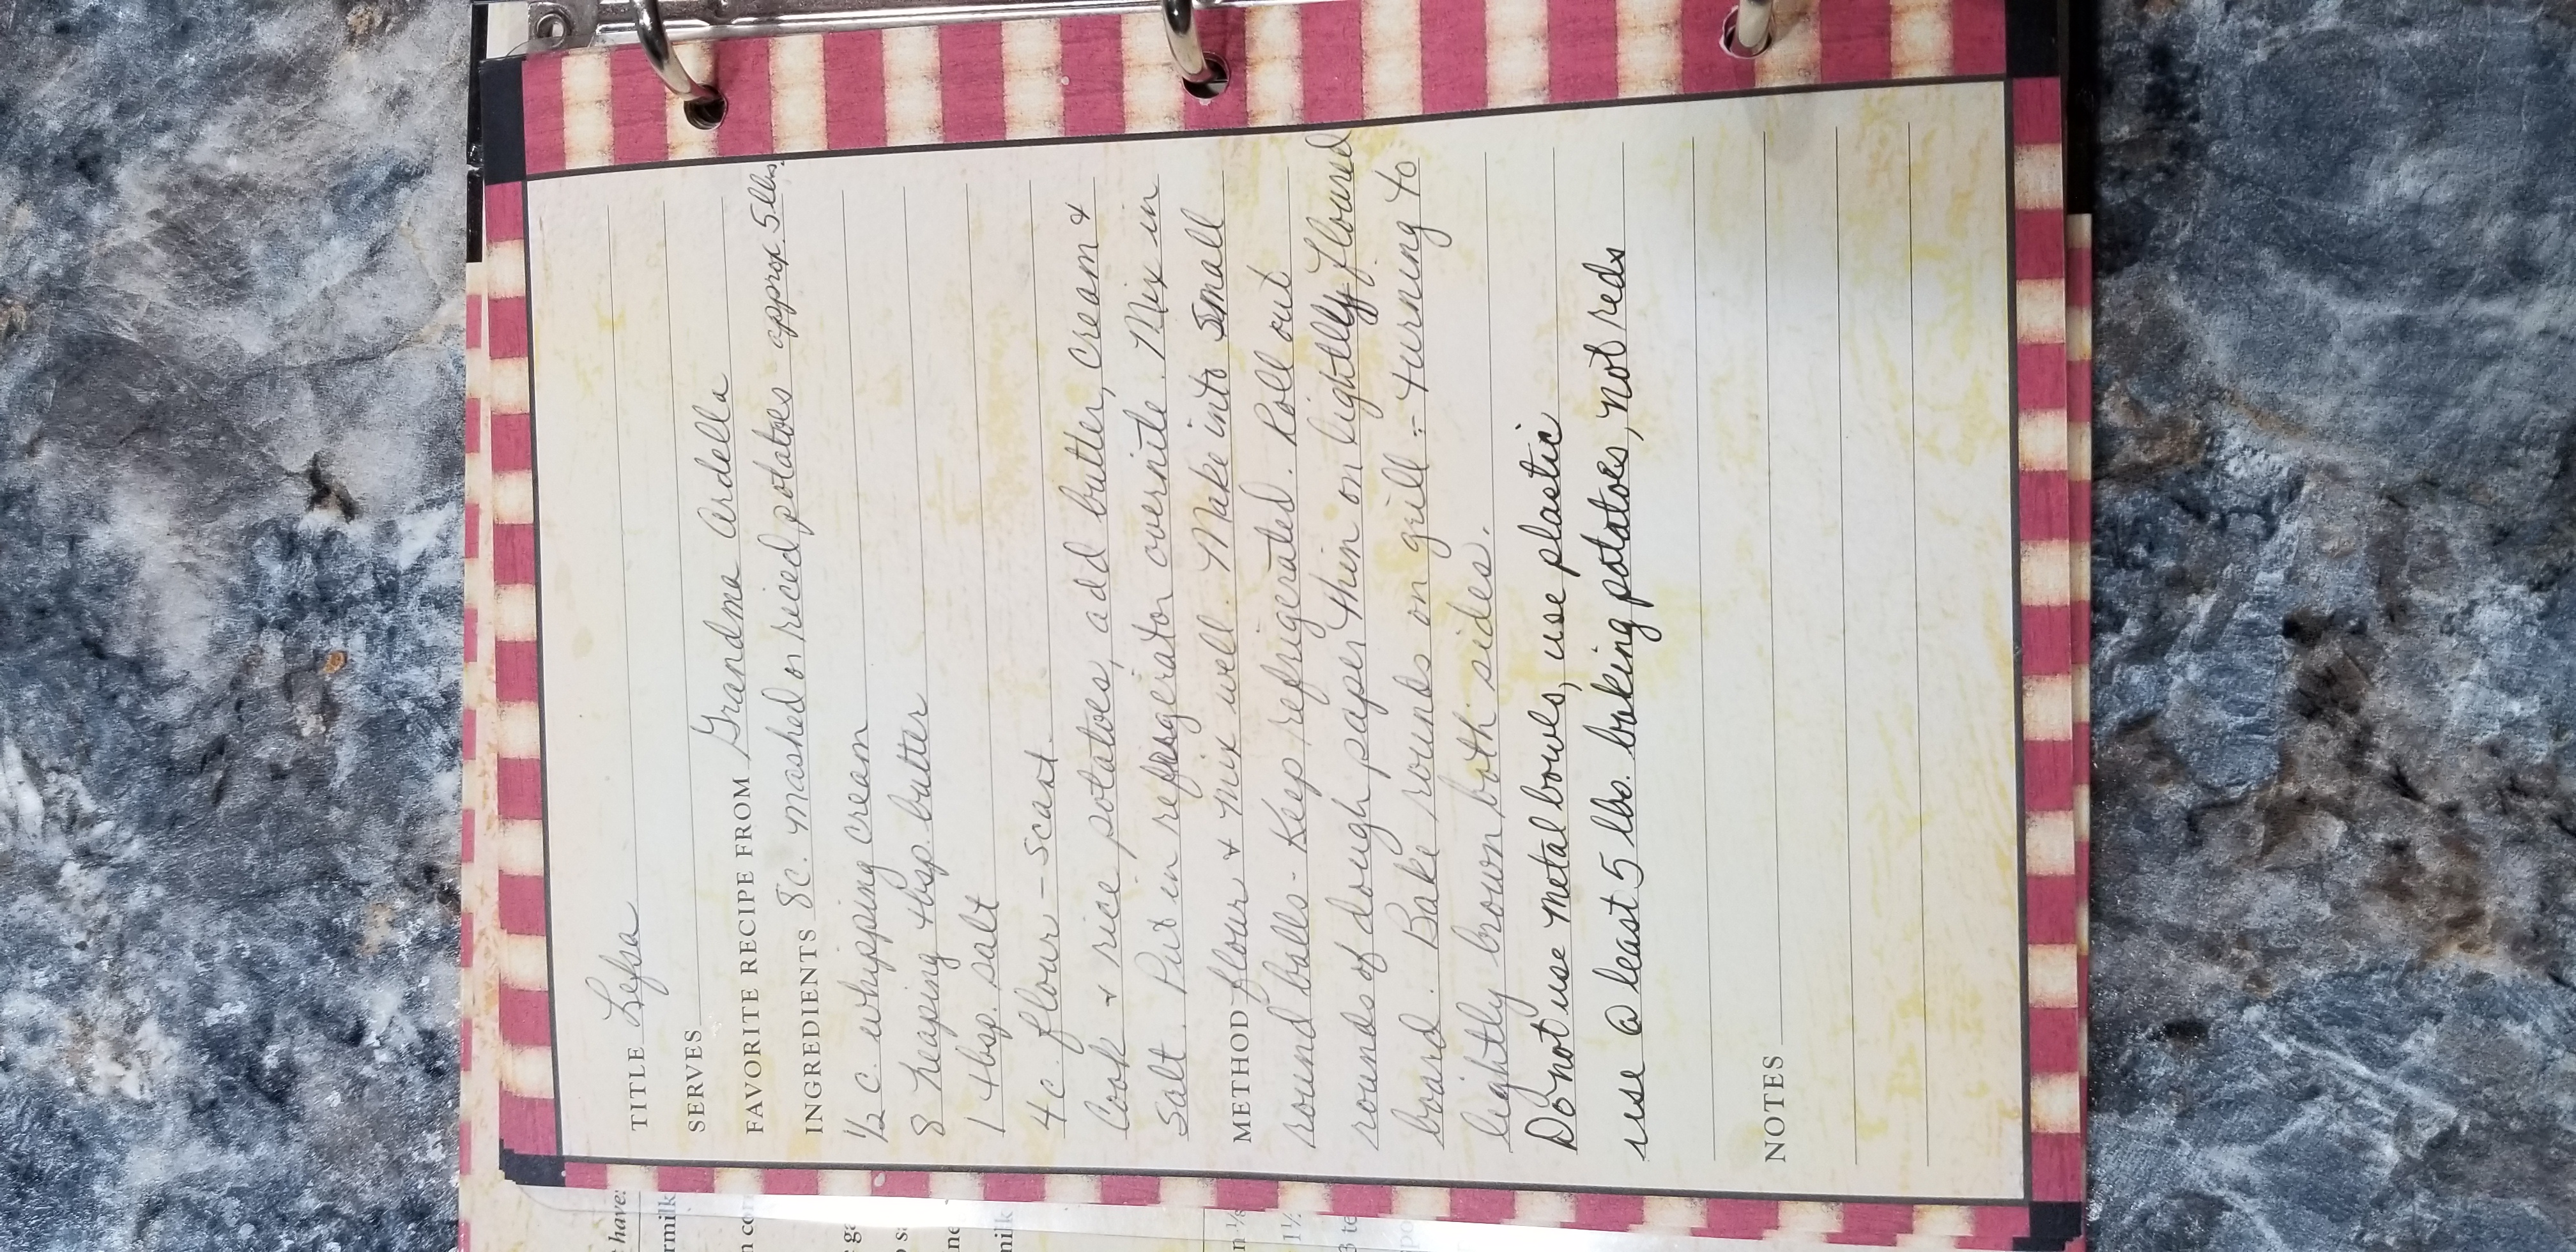 TITLE Lefsa
SERVES
FAVORITE RECIPE FROM Grandma Ardella
INGREDIENTS 8c. mashed or riced potatoes approx. 5 lbs.
1/2 c. whipping cream
8 heaping tbsp. butter
1 tbsp. salt
4c. flour - scant.
Cook & rice potatoes, add butter, cream &
salt. Put in refrigerator overnite. Mix in
METHOD flour & mix well. Make into small
round balls - Keep refrigerated. Roll out
rounds of dough paper thin on lightly floured
board. Bake rounds on grill - turning to
lightly brown both sides.
Do not use metal bowls, use plastic
use @ least 5 lbs. baking potatoes, not reds
NOTES
have:
rmilk
n
ga
ne
milk
n 1/8
1 1/2
3 te